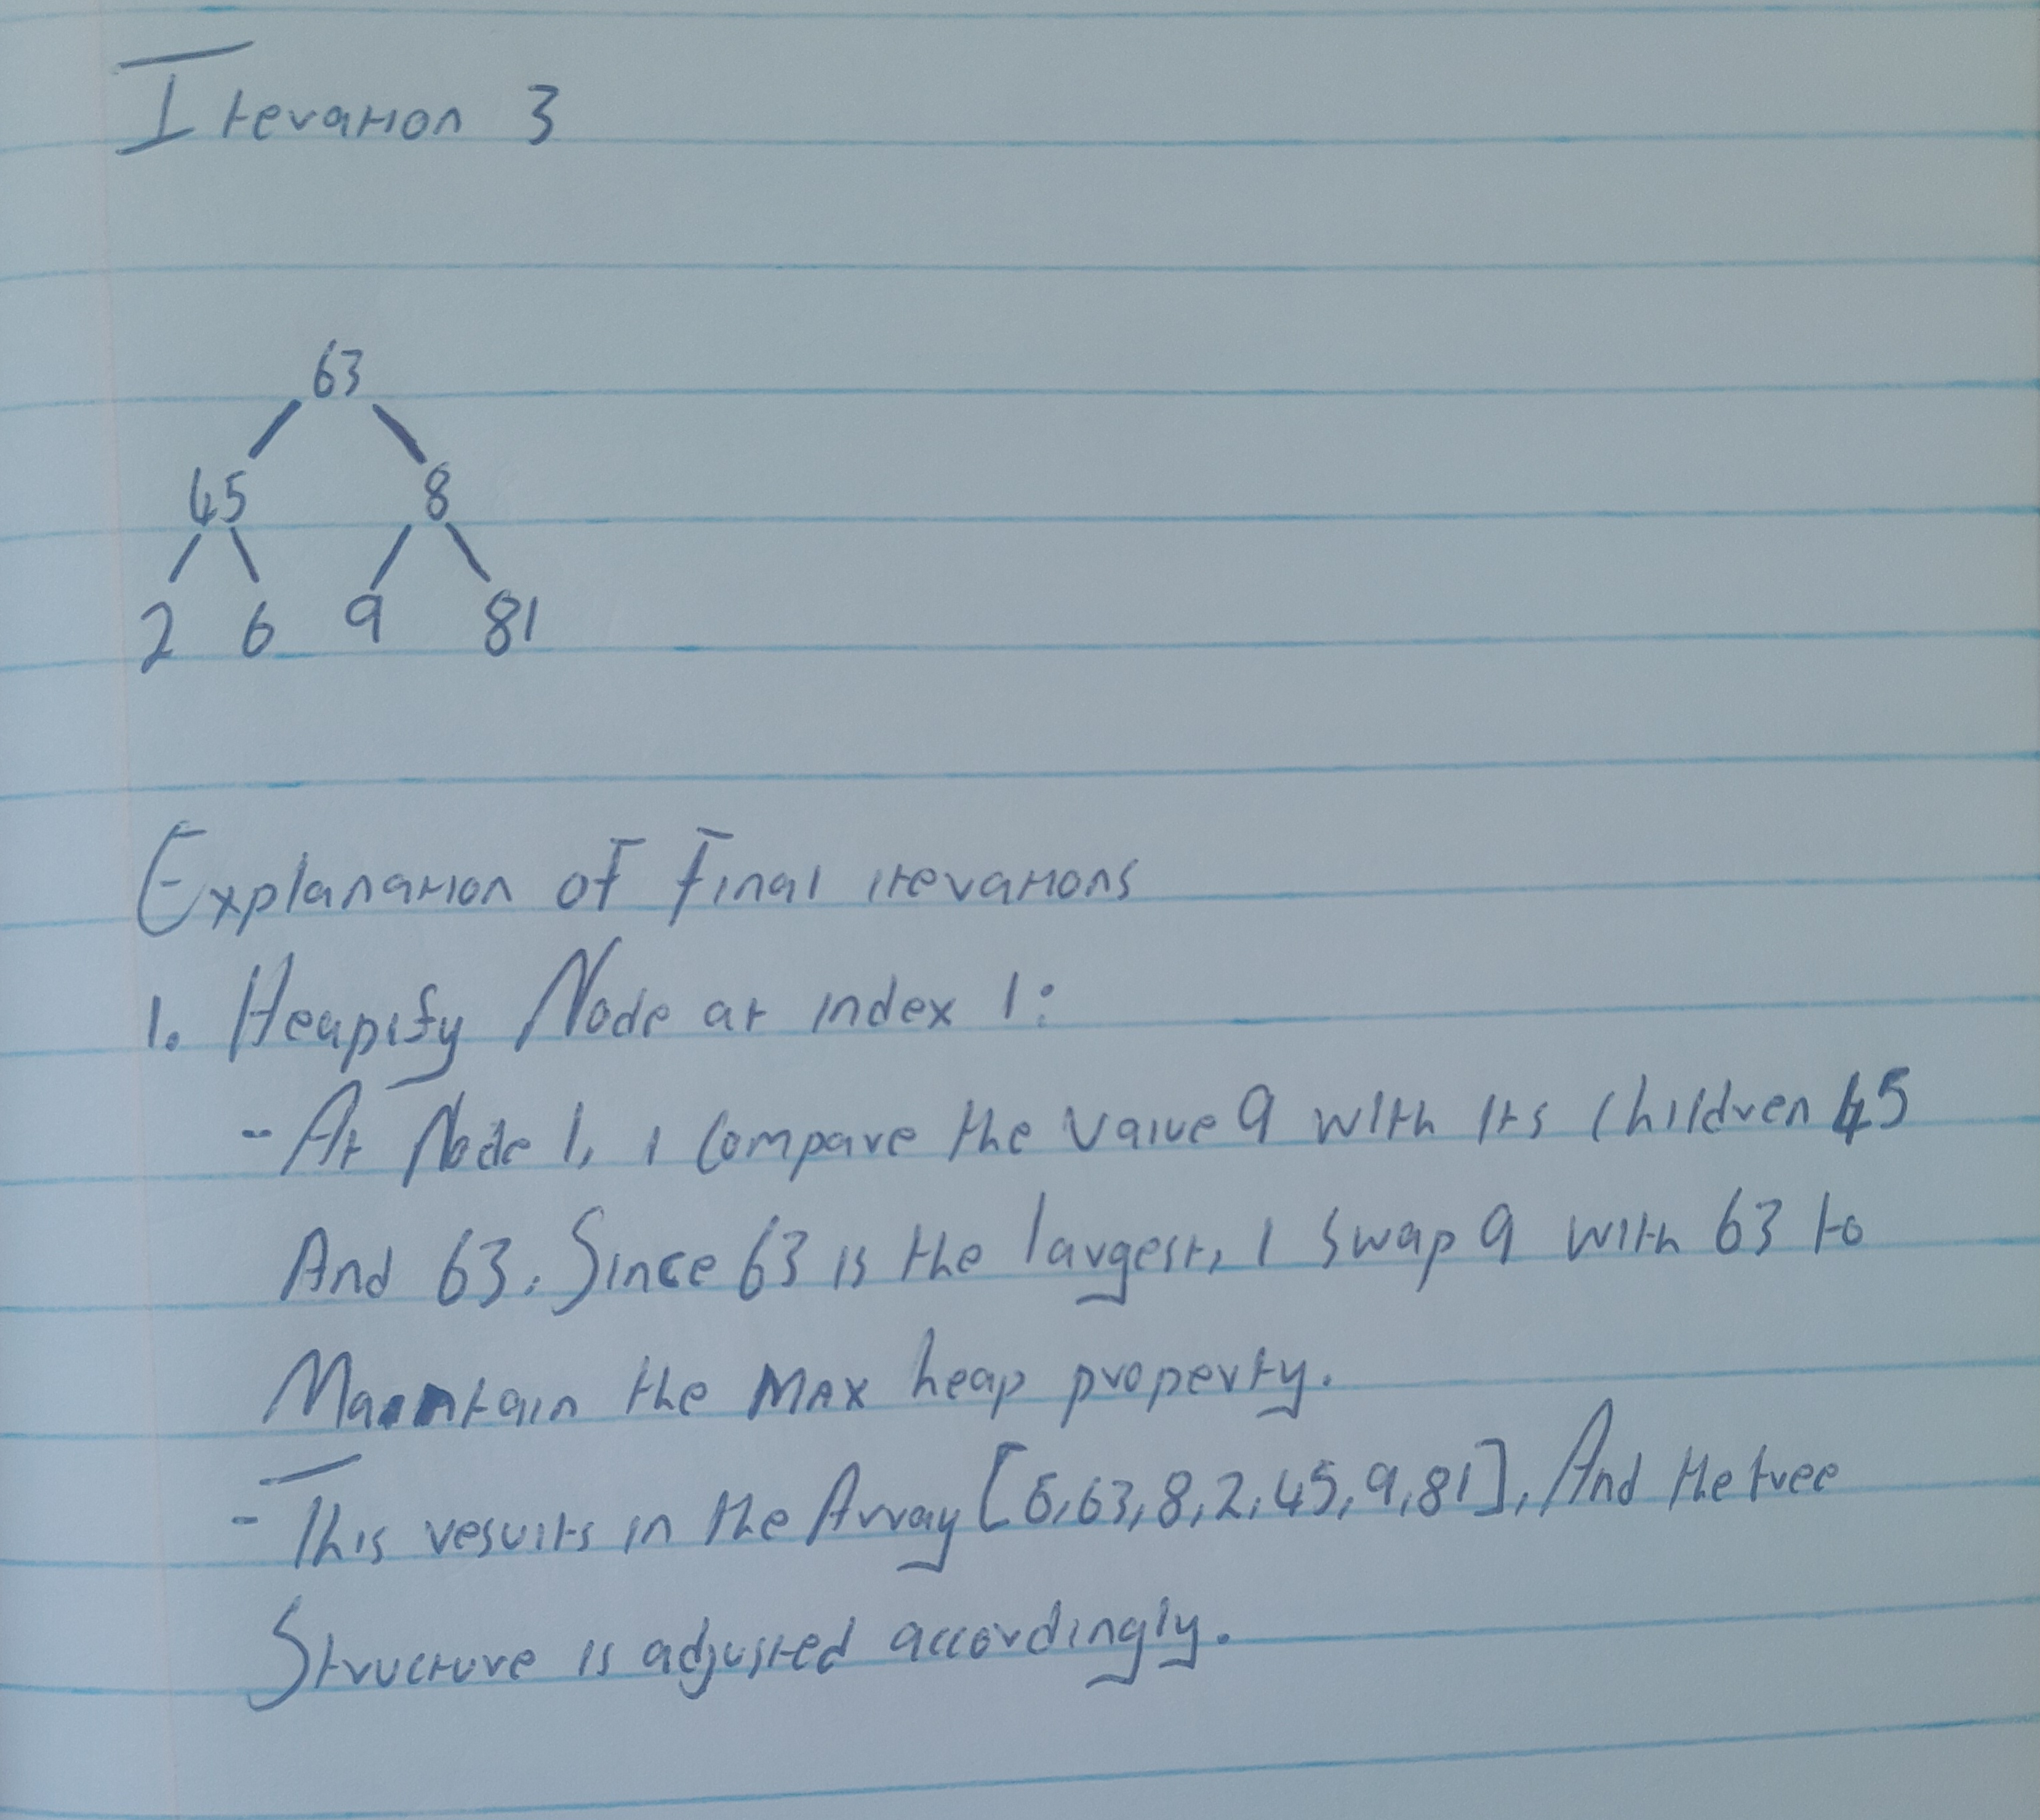 Iteration 3
63
45 8
2 6 9 81
Explanation of Final iterations
1. Heapify Node at index 1:
- At Node 1, I compare the value 9 with its children 45
And 63. Since 63 is the largest, I swap 9 with 63 to
Maintain the MAX heap property.
- This results in the Array [6,63,8,2,45,9,81], And the tree
Structure is adjusted accordingly.